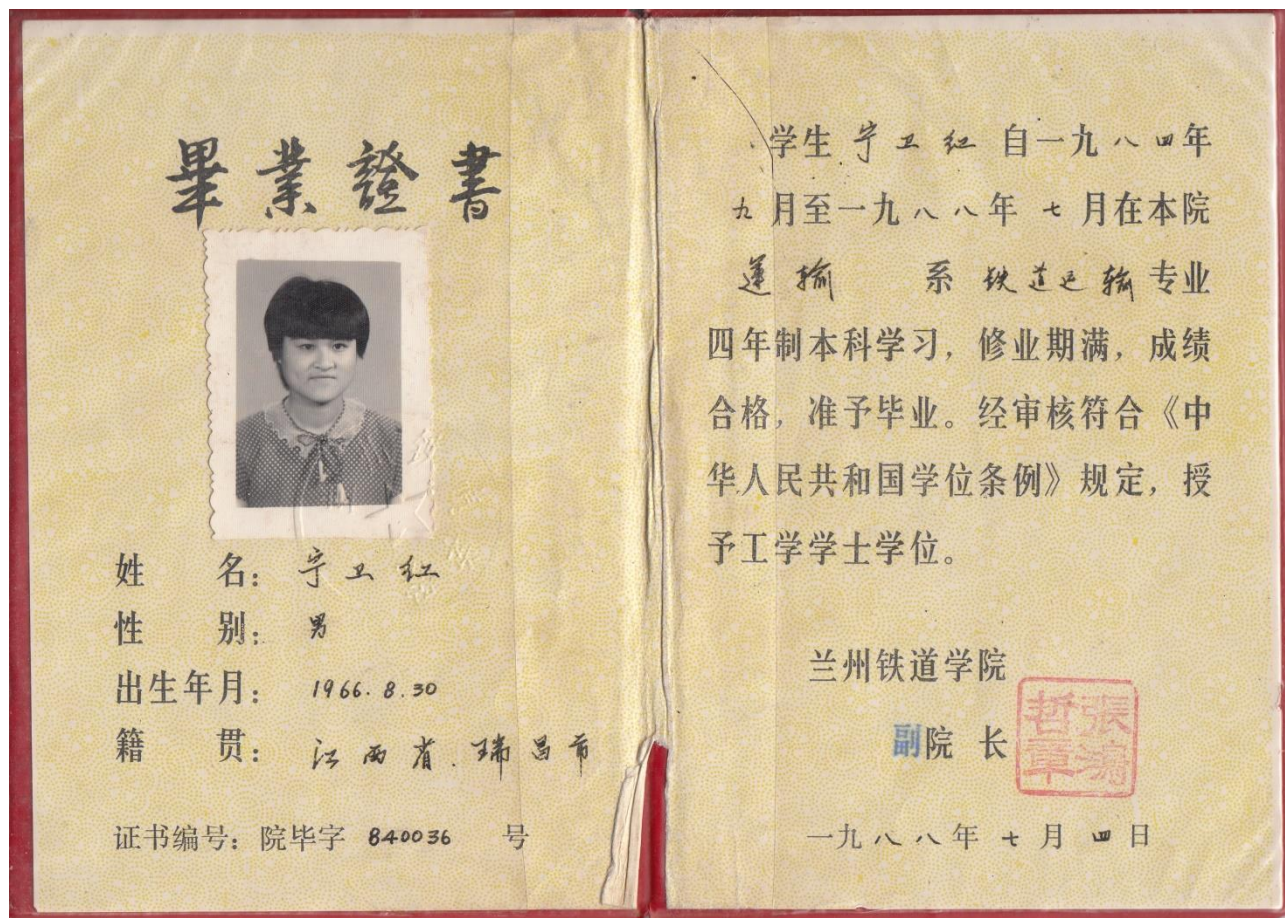 畢業證書
姓名：宁卫红
性别：男
出生年月：1966.8.30
籍贯：江西省.瑞昌市
证书编号：院毕字 840036 号
学生宁卫红自一九八四年
九月至一九八八年七月在本院
运输系铁道运输专业
四年制本科学习，修业期满，成绩
合格，准予毕业。经审核符合《中
华人民共和国学位条例》规定，授
予工学学士学位。
兰州铁道学院
副院长
一九八八年七月四日